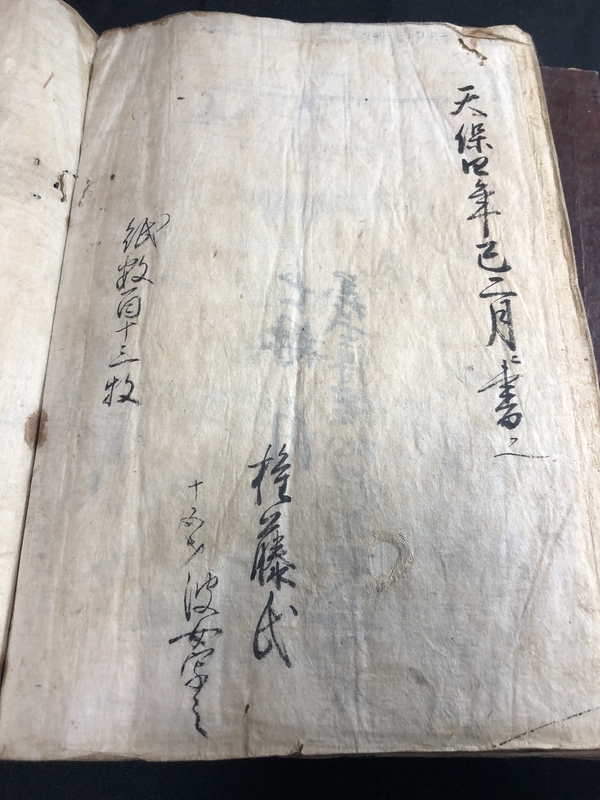 天保四年巳二月ニ書之
権藤氏
十五才 波
紙数百十三枚